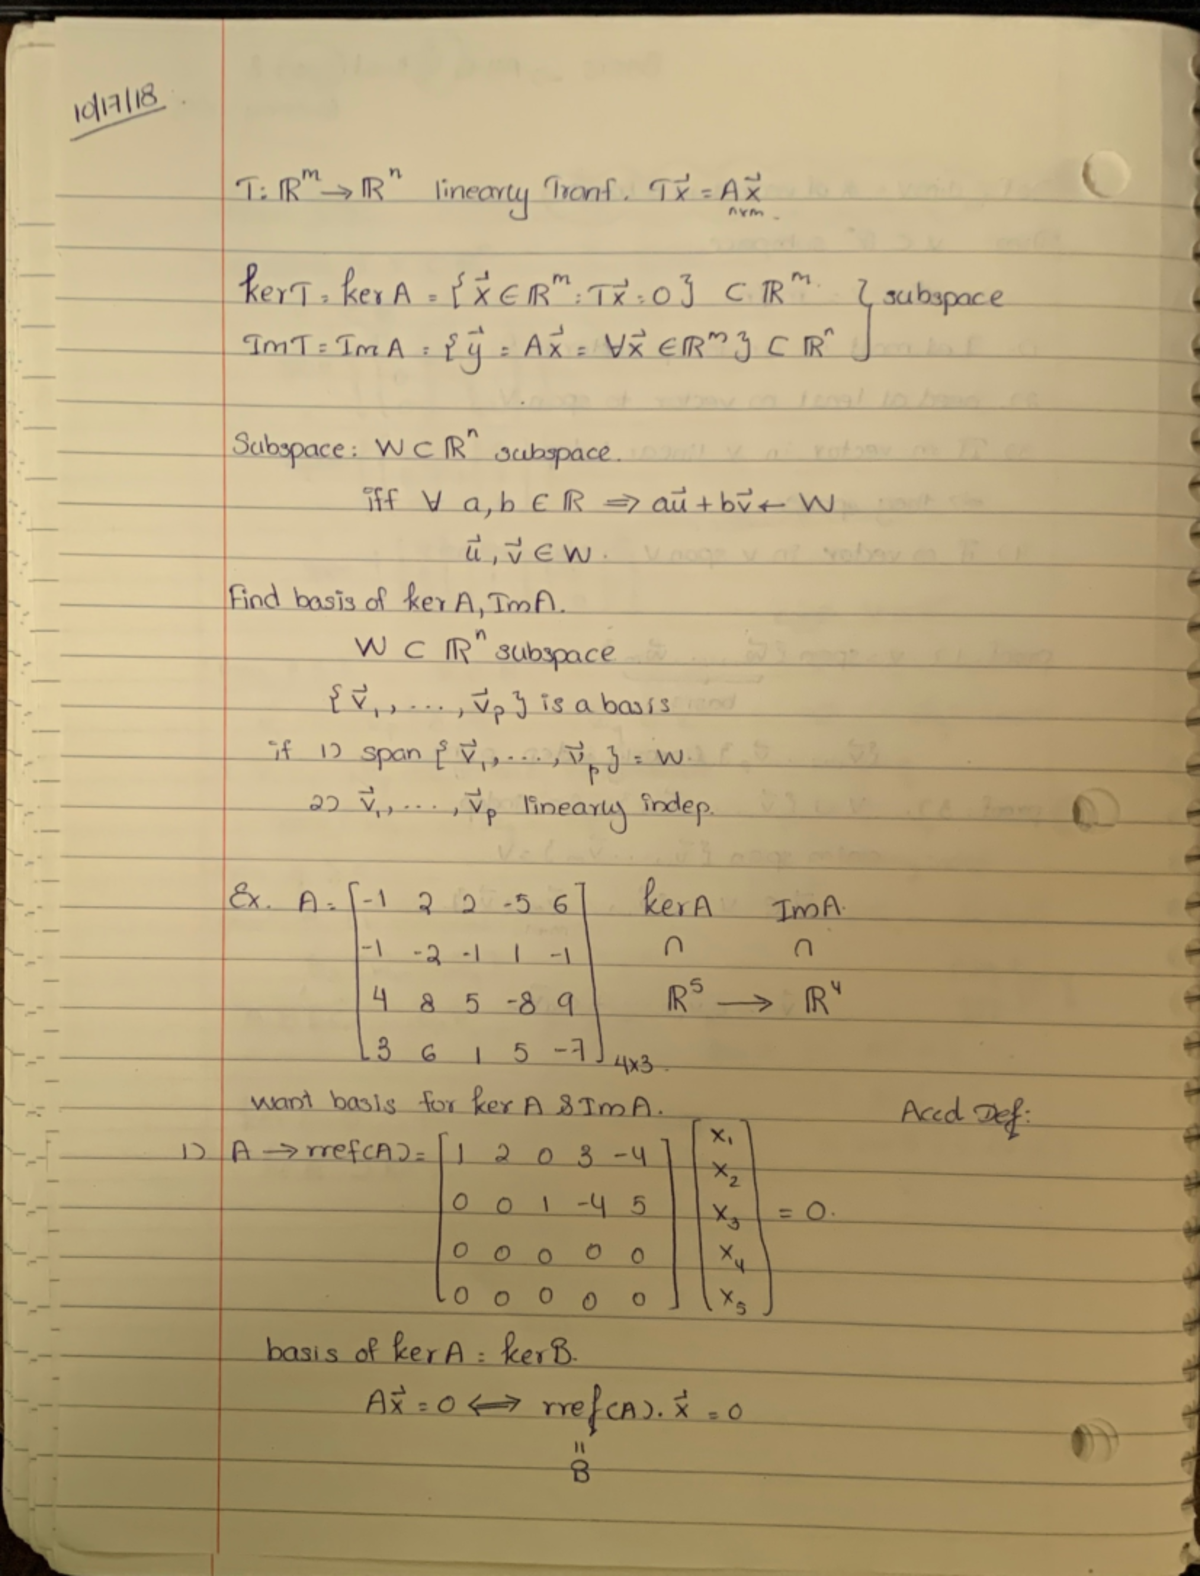 10/17/18
T: ℝᵐ → ℝⁿ linearly Tranf. Tx⃗ = Ax⃗
nxm.
kerT = kerA = { x⃗ ∈ ℝᵐ : Tx⃗ = 0 } ⊂ ℝᵐ } subspace
ImT = ImA = { y⃗ = Ax⃗ = ∀x⃗ ∈ ℝᵐ } ⊂ ℝⁿ
Subspace: W ⊂ ℝⁿ subspace.
iff ∀ a, b ∈ ℝ ⇒ au⃗ + bv⃗ ← W
u⃗, v⃗ ∈ W.
Find basis of ker A, ImA.
W ⊂ ℝⁿ subspace
{ v⃗₁, ..., v⃗p } is a basis
if 1) span { v⃗₁, ..., v⃗p } = W.
2) v⃗₁, ..., v⃗p linearly indep.
Ex. A = [ -1 2 2 -5 6 ] kerA ImA.
-1 -2 -1 1 -1 ∩ ∩
4 8 5 -8 9 ℝ⁵ → ℝ⁴
3 6 1 5 -7 4x3.
want basis for ker A & ImA. Accd Def:
1) A → rref(A) = [ 1 2 0 3 -4 ] [ x₁
0 0 1 -4 5 x₂
0 0 0 0 0 x₃ = 0.
0 0 0 0 0 x₄
x₅ ]
basis of kerA = kerB.
Ax⃗ = 0 ⟺ rref(A). x⃗ = 0
=
B